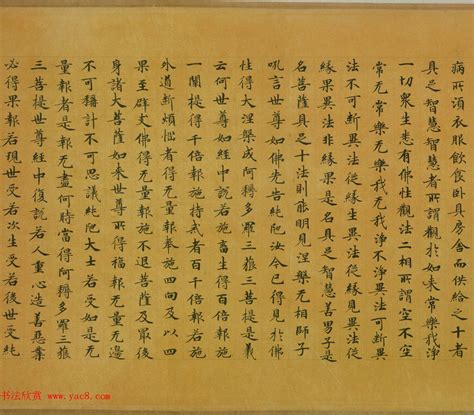 病所須衣服飲食臥具房舍而供給之十者
具足智慧智慧者所謂觀於如来常樂我淨
一切衆生悉有佛性觀法二相所謂空不空
常无常樂无樂我无我淨不淨異法可斷異
法不可斷異法從緣生異法從緣見異法從
緣果異法非緣果是名具足智慧善男子是
名菩薩具足十法則能明見涅槃无相師子
吼言世尊如佛先告純陀汝今已得見於佛
性得大涅槃成阿耨多羅三藐三菩提是義
云何世尊如經中說若施畜生得百倍報施
一闡提得千倍報施持戒者百千倍報若施
外道斷煩惱者得无量報奉施四向及以四
果至辟支佛得无量報施不退菩薩及最後
身諸大菩薩如来世尊所得福報无量无邊
不可稱計不可思議純陀大士若受如是无
量報者是報无盡何時當得阿耨多羅三藐
三菩提世尊經中復說若人重心造善惡業
必得果報若現世受若次生受若後世受純
书法欣赏 www.yac8.com